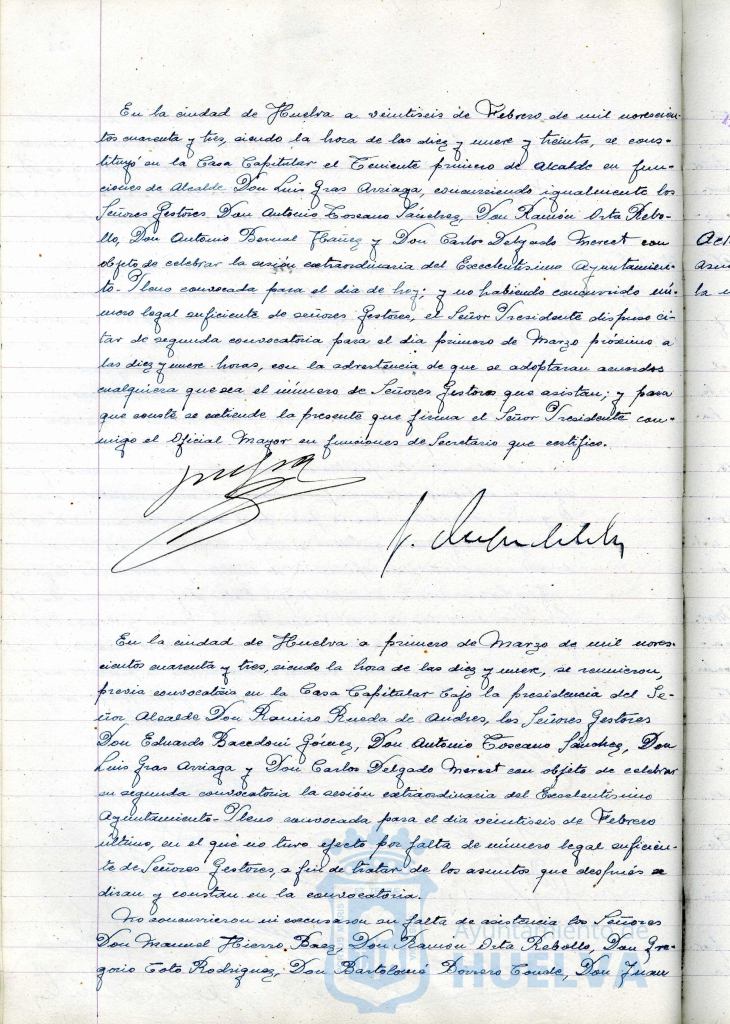 En la ciudad de Huelva a veintiseis de Febrero de mil novescien-
tos cuarenta y tres, siendo la hora de las diez y nueve y treinta, se cons-
tituyó en la Casa Capitular el Teniente primero de Alcalde en fun-
ciones de Alcalde Don Luis Gras Arriaga, concurriendo igualmente los
Señores Gestores Don Antonio Toscano Sánchez, Don Ramón Orta Rebo-
llo, Don Antonio Bernal Ibáñez y Don Carlos Delgado Merect con
objeto de celebrar la sesión extraordinaria del Excelentísimo Ayuntamien-
to-Pleno convocada para el dia de hoy; y no habiendo concurrido nú-
mero legal suficiente de señores Gestores, el Señor Presidente dispuso ci-
tar de segunda convocatoria para el dia primero de Marzo próximo a
las diez y nueve horas, con la advertencia de que se adoptaran acuerdos
cualquiera que sea el número de Señores Gestores que asistan; y para
que conste se extiende la presente que firma el Señor Presidente con-
migo el Oficial Mayor en funciones de Secretario que certifico.
En la ciudad de Huelva a primero de Marzo de mil noves-
cientos cuarenta y tres, siendo la hora de las diez y nueve, se reunieron,
previa convocatoria en la Casa Capitular bajo la presidencia del Se-
ñor Alcalde Don Ramiro Rueda de Andres, los Señores Gestores
Don Eduardo Bacedoni Gómez, Don Antonio Toscano Sánchez, Don
Luis Gras Arriaga y Don Carlos Delgado Merect con objeto de celebrar
en segunda convocatoria la sesión extraordinaria del Excelentísimo
Ayuntamiento-Pleno convocada para el dia veintiseis de Febrero
último, en el que no tuvo efecto por falta de número legal suficien-
te de Señores Gestores, a fin de tratar de los asuntos que después se
diran y constan en la convocatoria.
No concurrieron ni excusaron su falta de asistencia los Señores
Don Manuel Hierro Baez, Don Ramón Orta Rebollo, Don Gre-
gorio Toto Rodriguez, Don Bartolomé Borrero Conde, Don Juan
Ayuntamiento de
HUELVA